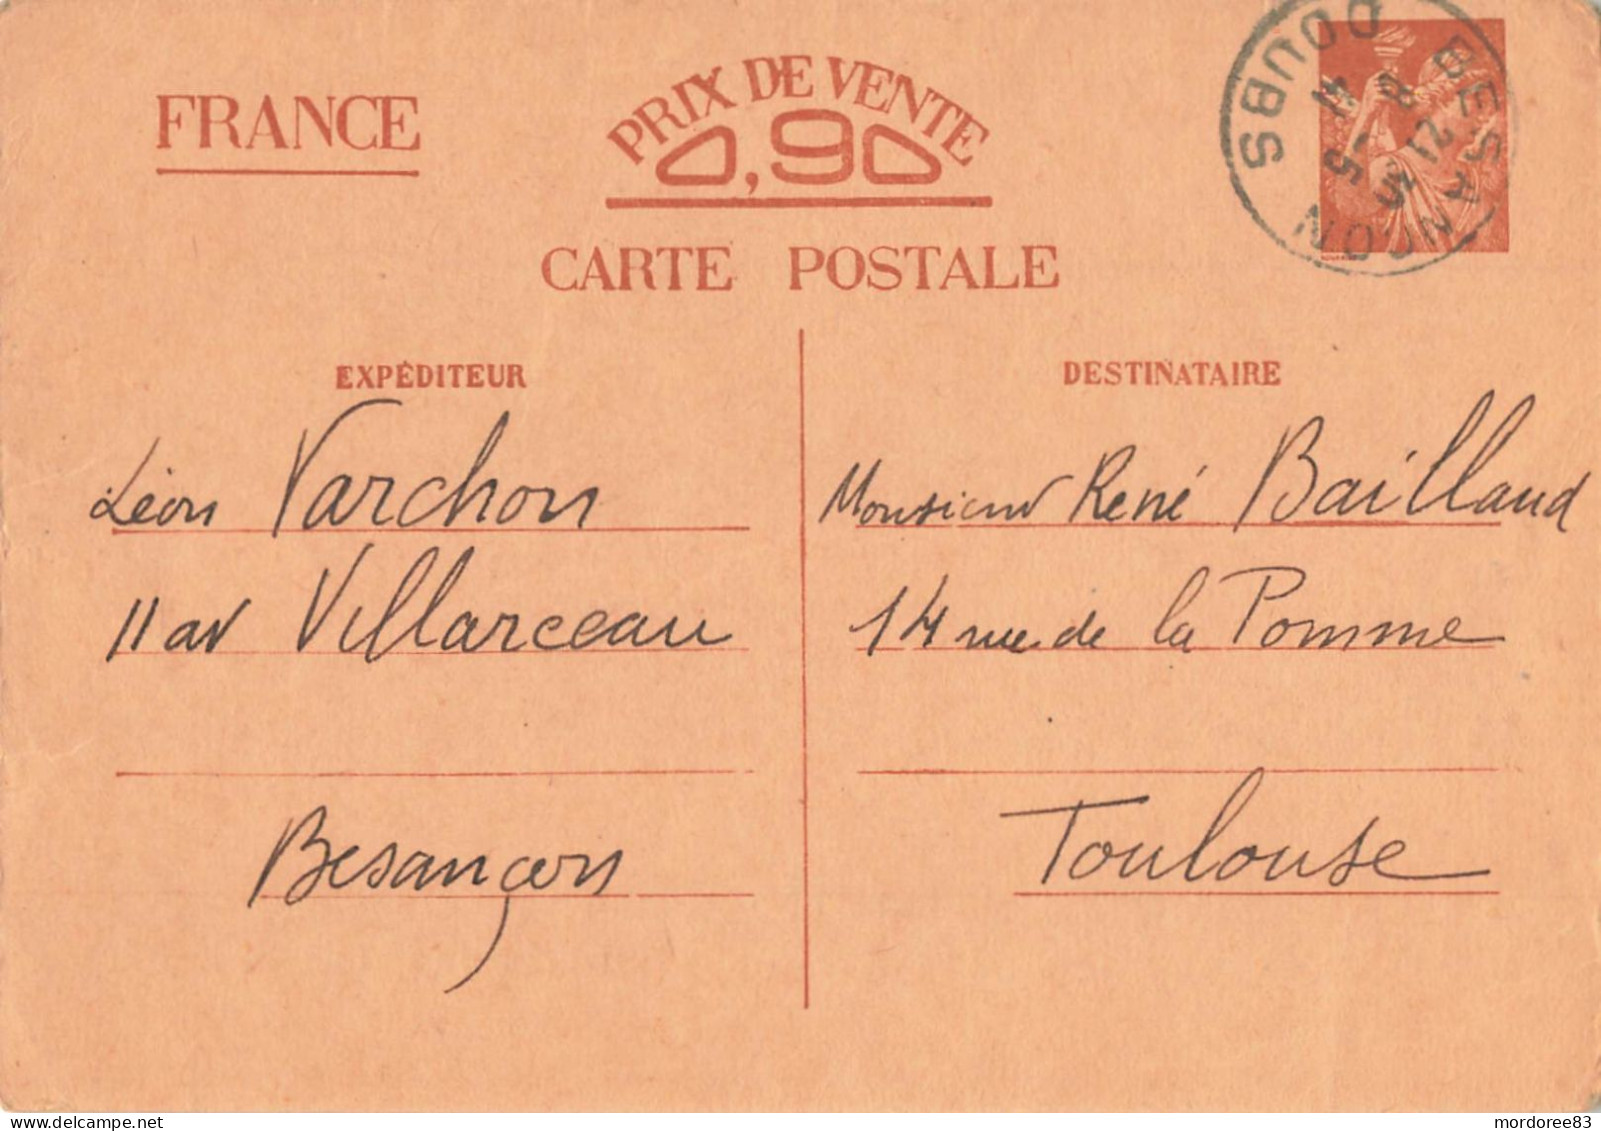 FRANCE
PRIX DE VENTE
0,90
CARTE POSTALE
BESANÇON
DOUBS
EXPÉDITEUR
Léon Varchon
11 av Villarceau
Besançon
DESTINATAIRE
Monsieur René Bailland
14 rue de la Pomme
Toulouse
www.delcampe.net
mordoree83